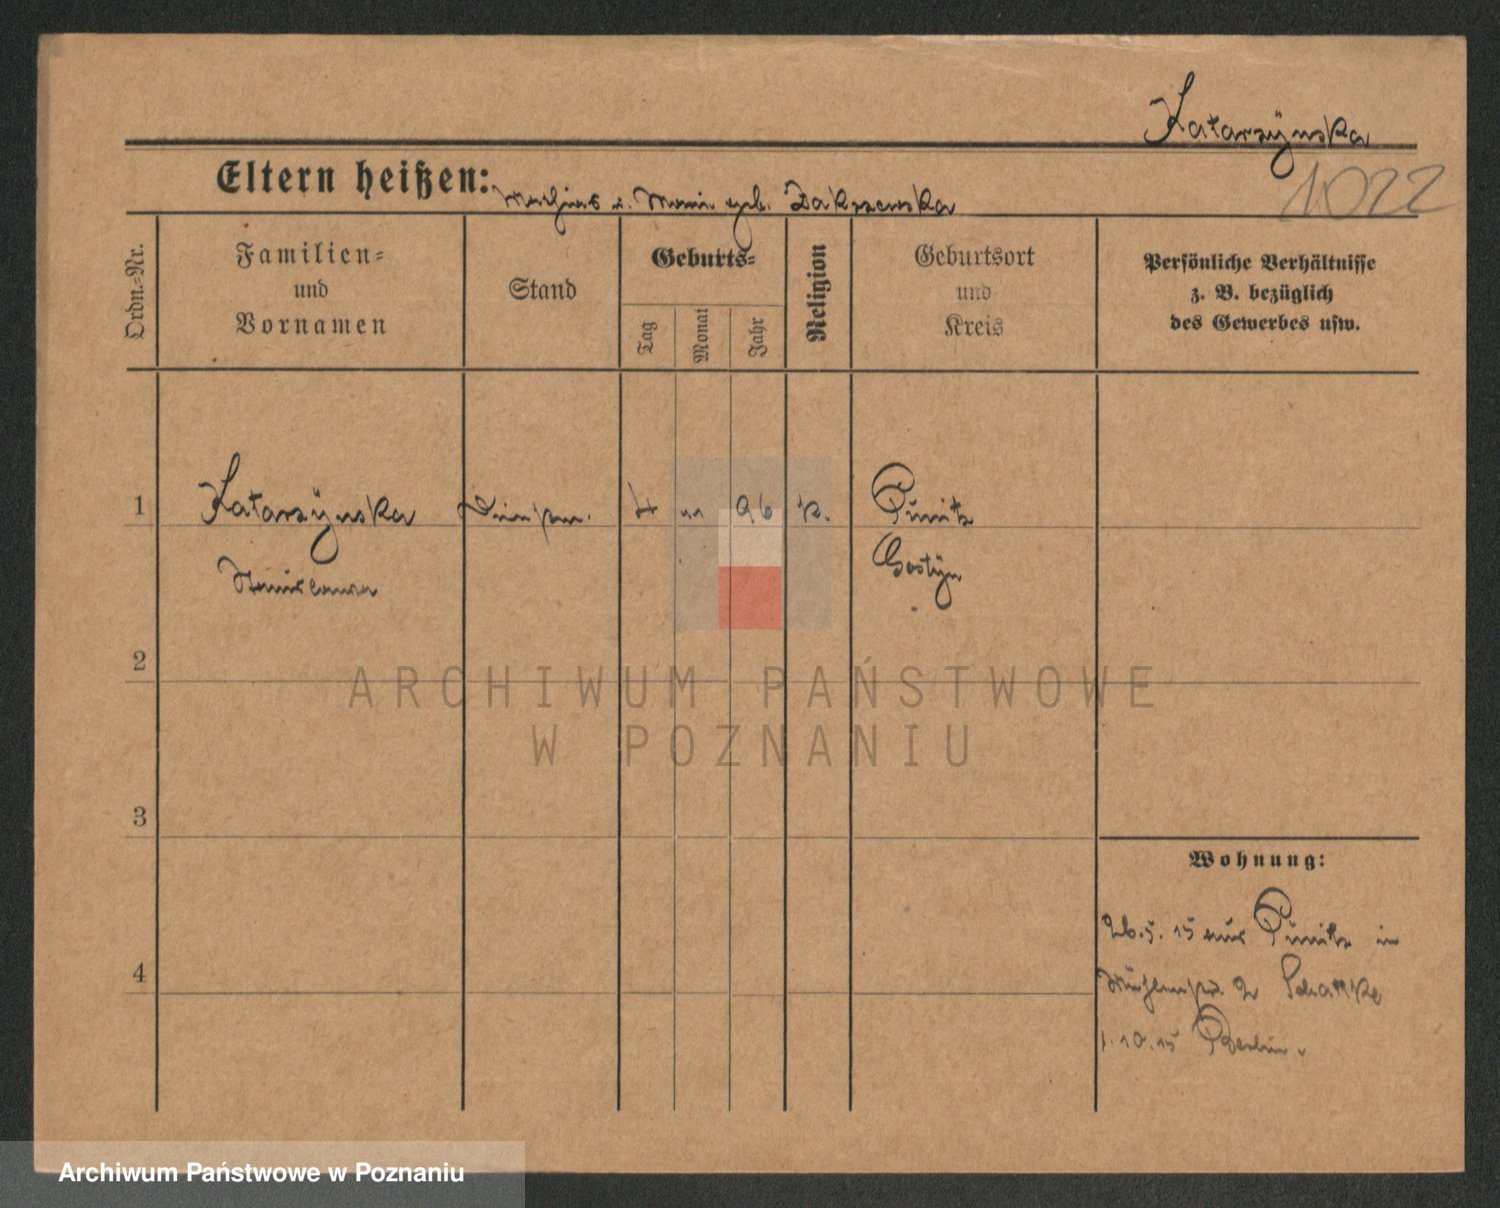 Katarzÿnska
1022
Eltern heißen: Mathias u. Marie geb. Dakszewska
Ordn.-Nr.
Familien-
und
Vornamen
Stand
Geburts-
Tag
Monat
Jahr
Religion
Geburtsort
und
Kreis
Persönliche Verhältnisse
z. B. bezüglich
des Gewerbes usw.
1 Katarzÿnska 4 11 96 k. Punitz
Stanislawa Gostÿn
2
ARCHIWUM PAŃSTWOWE
W POZNANIU
3
Wohnung:
26.5.15 aus Punitz in
Mühlenstr. 2 Schattke
1.10.15 Berlin.
4
Archiwum Państwowe w Poznaniu